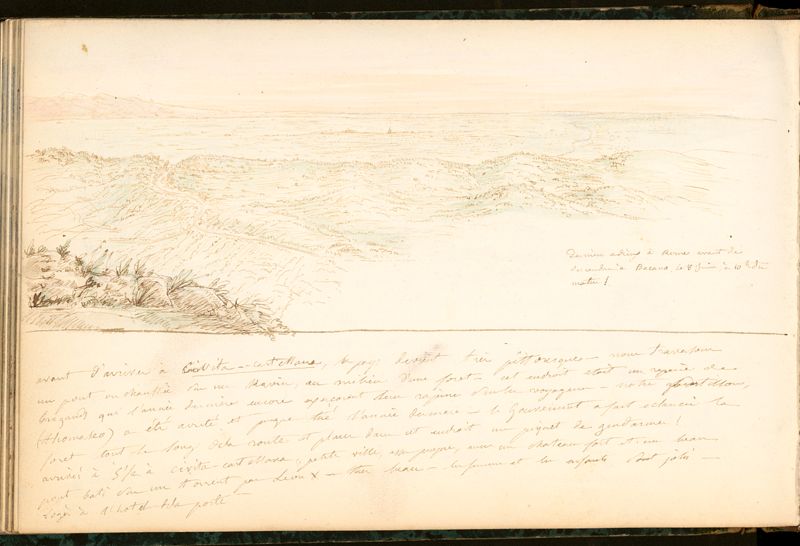 Derniers adieux à Rome avant de
descendre à Bacano le 8 juin à 10 h du
matin!
avant d'arriver à Civita-castellana, le pays devient très pittoresque – nous traversons
un pont en chantier sur un Ravin, au milieu d'une foret – cet endroit etoit un repaire de
brigands qui l'année dernière encore exerçaient leur rapine sur les voyageurs – notre
a été arrêté et presque tué l'année dernière – le Gouvernement a fait éclaircir la
foret tout le long de la route et placer dans cet endroit un piquet de gendarmes!
arrivés à 5h½ à civita-castellana, petite ville, propre, avec un chateau fort et un beau
pont bati sur un torrent par Leon X – très beau – les femmes et les enfants sont jolis –
Logé à l'hotel de la poste –